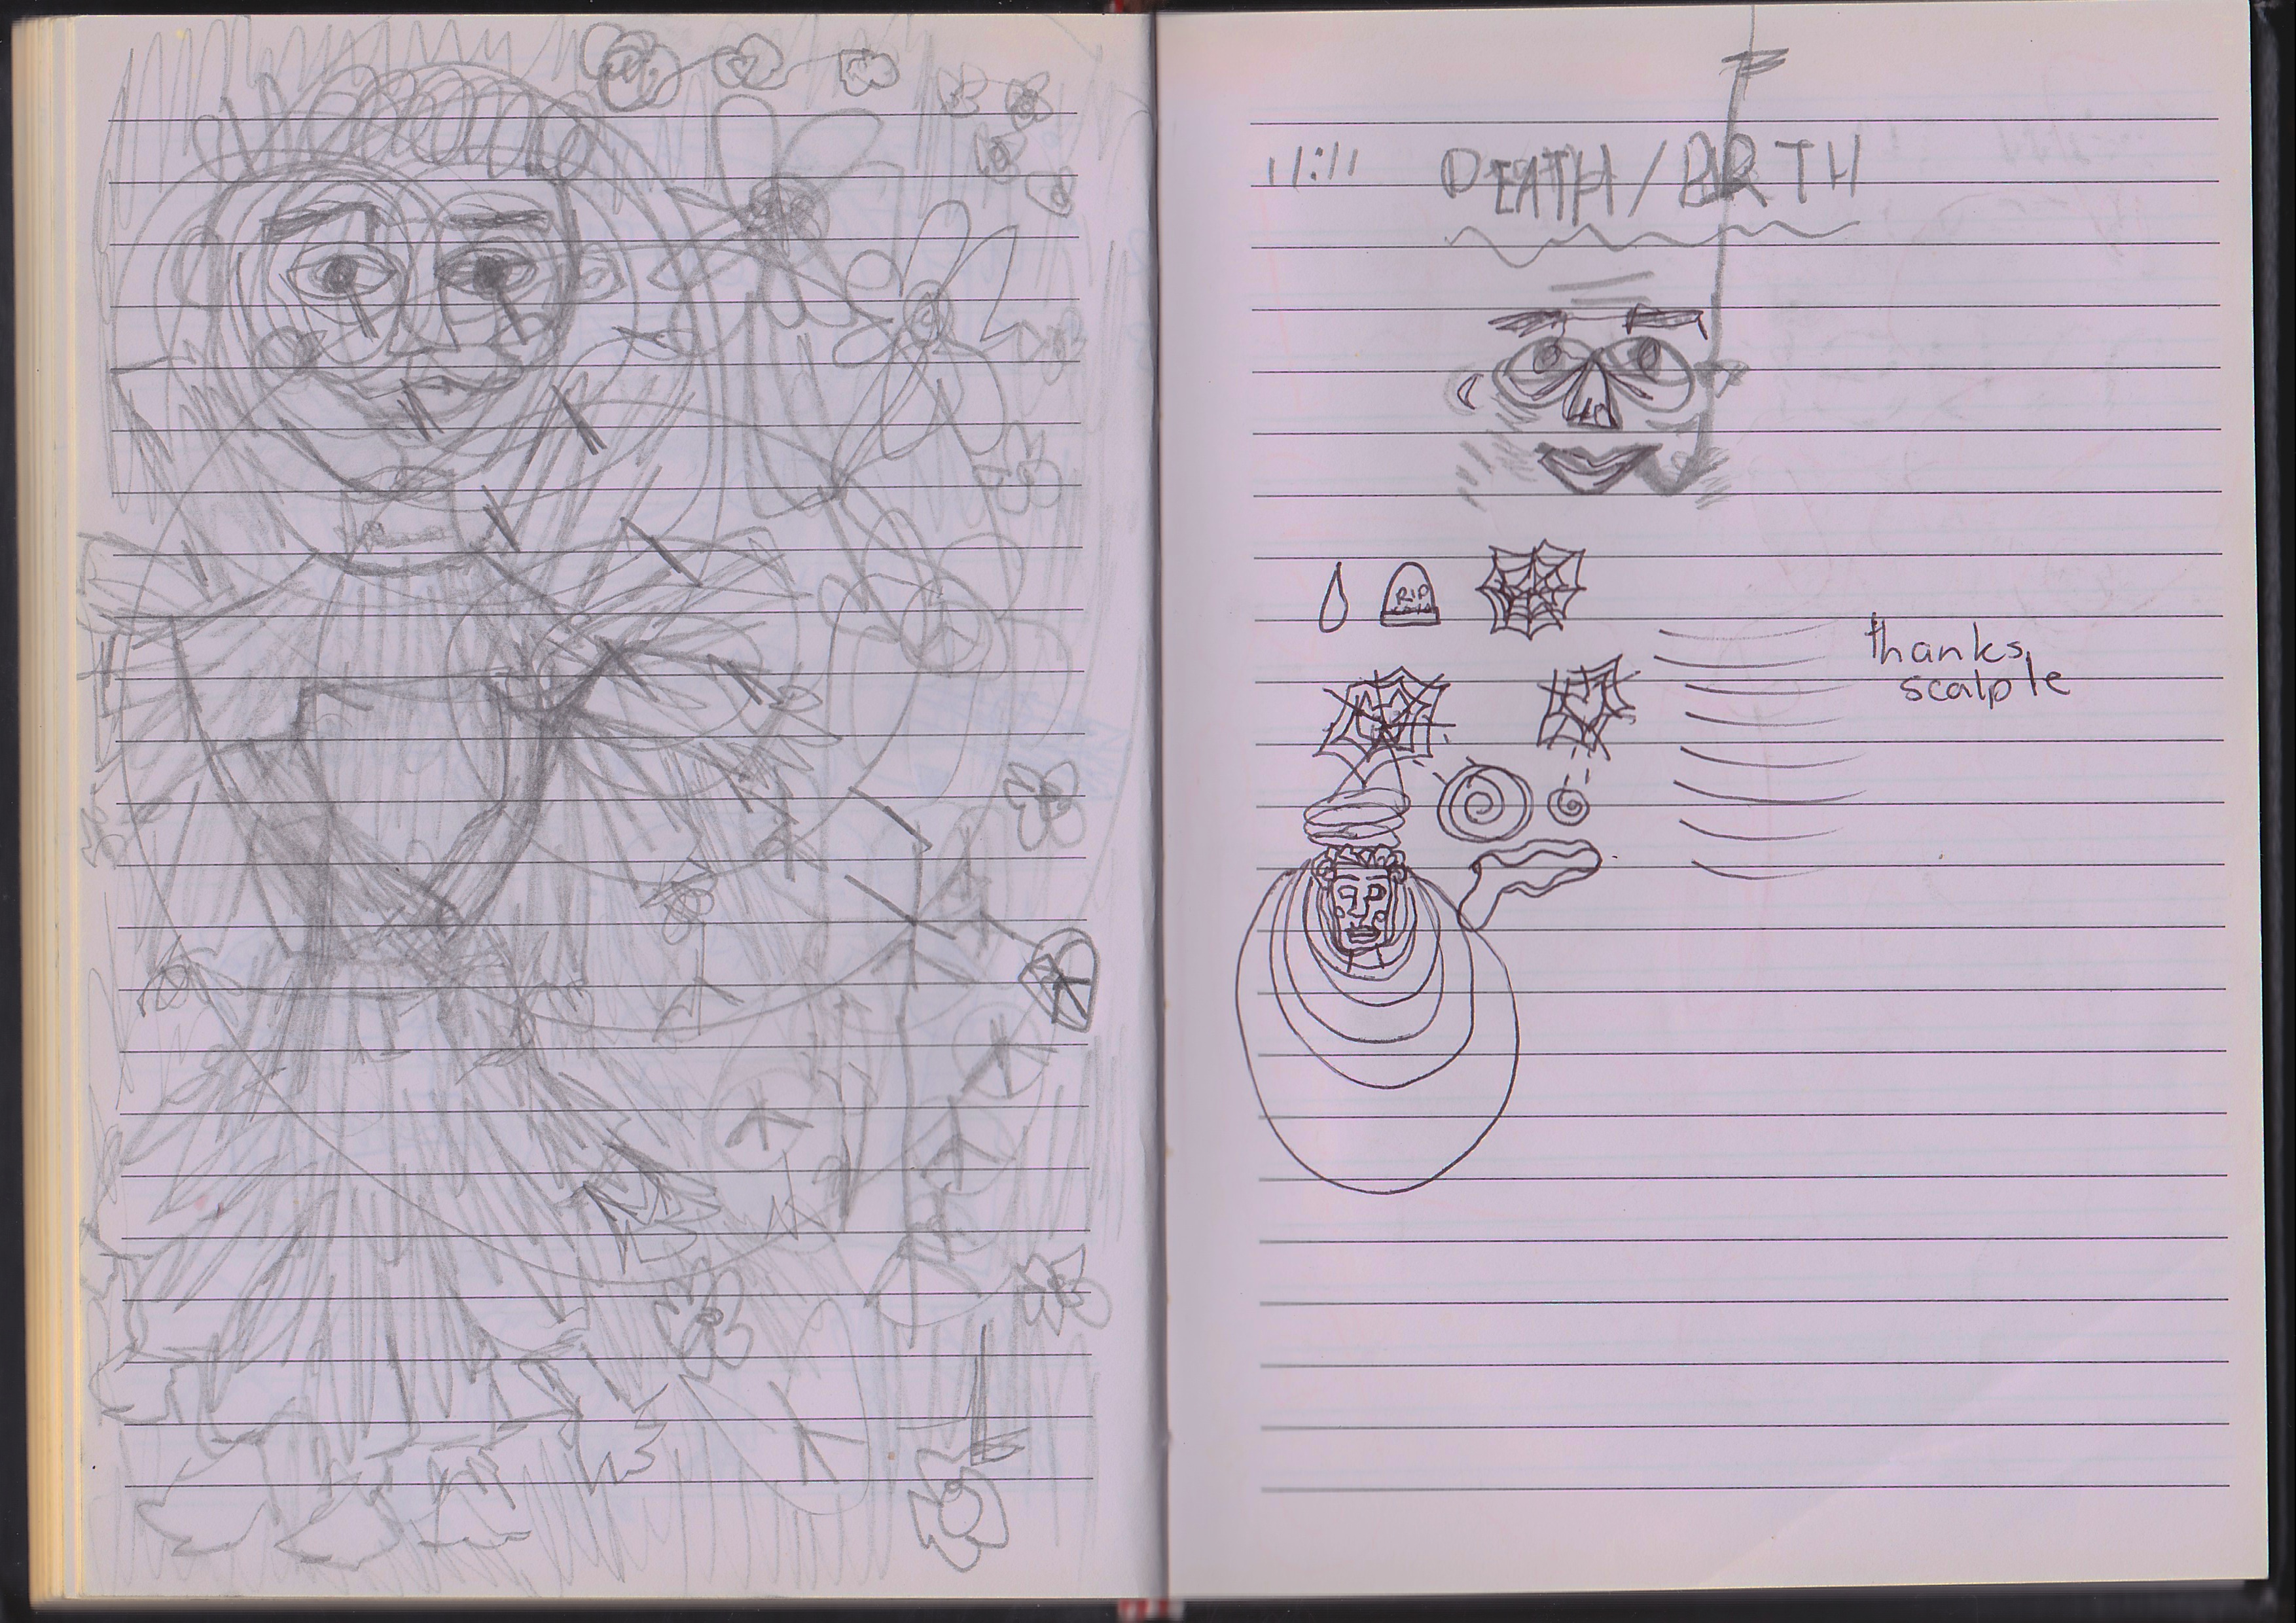 11:11 DEATH / BIRTH
RIP
thanks
scalple